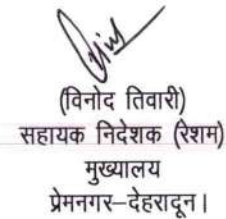 (विनोद तिवारी)
सहायक निदेशक (रेशम)
मुख्यालय
प्रेमनगर–देहरादून।